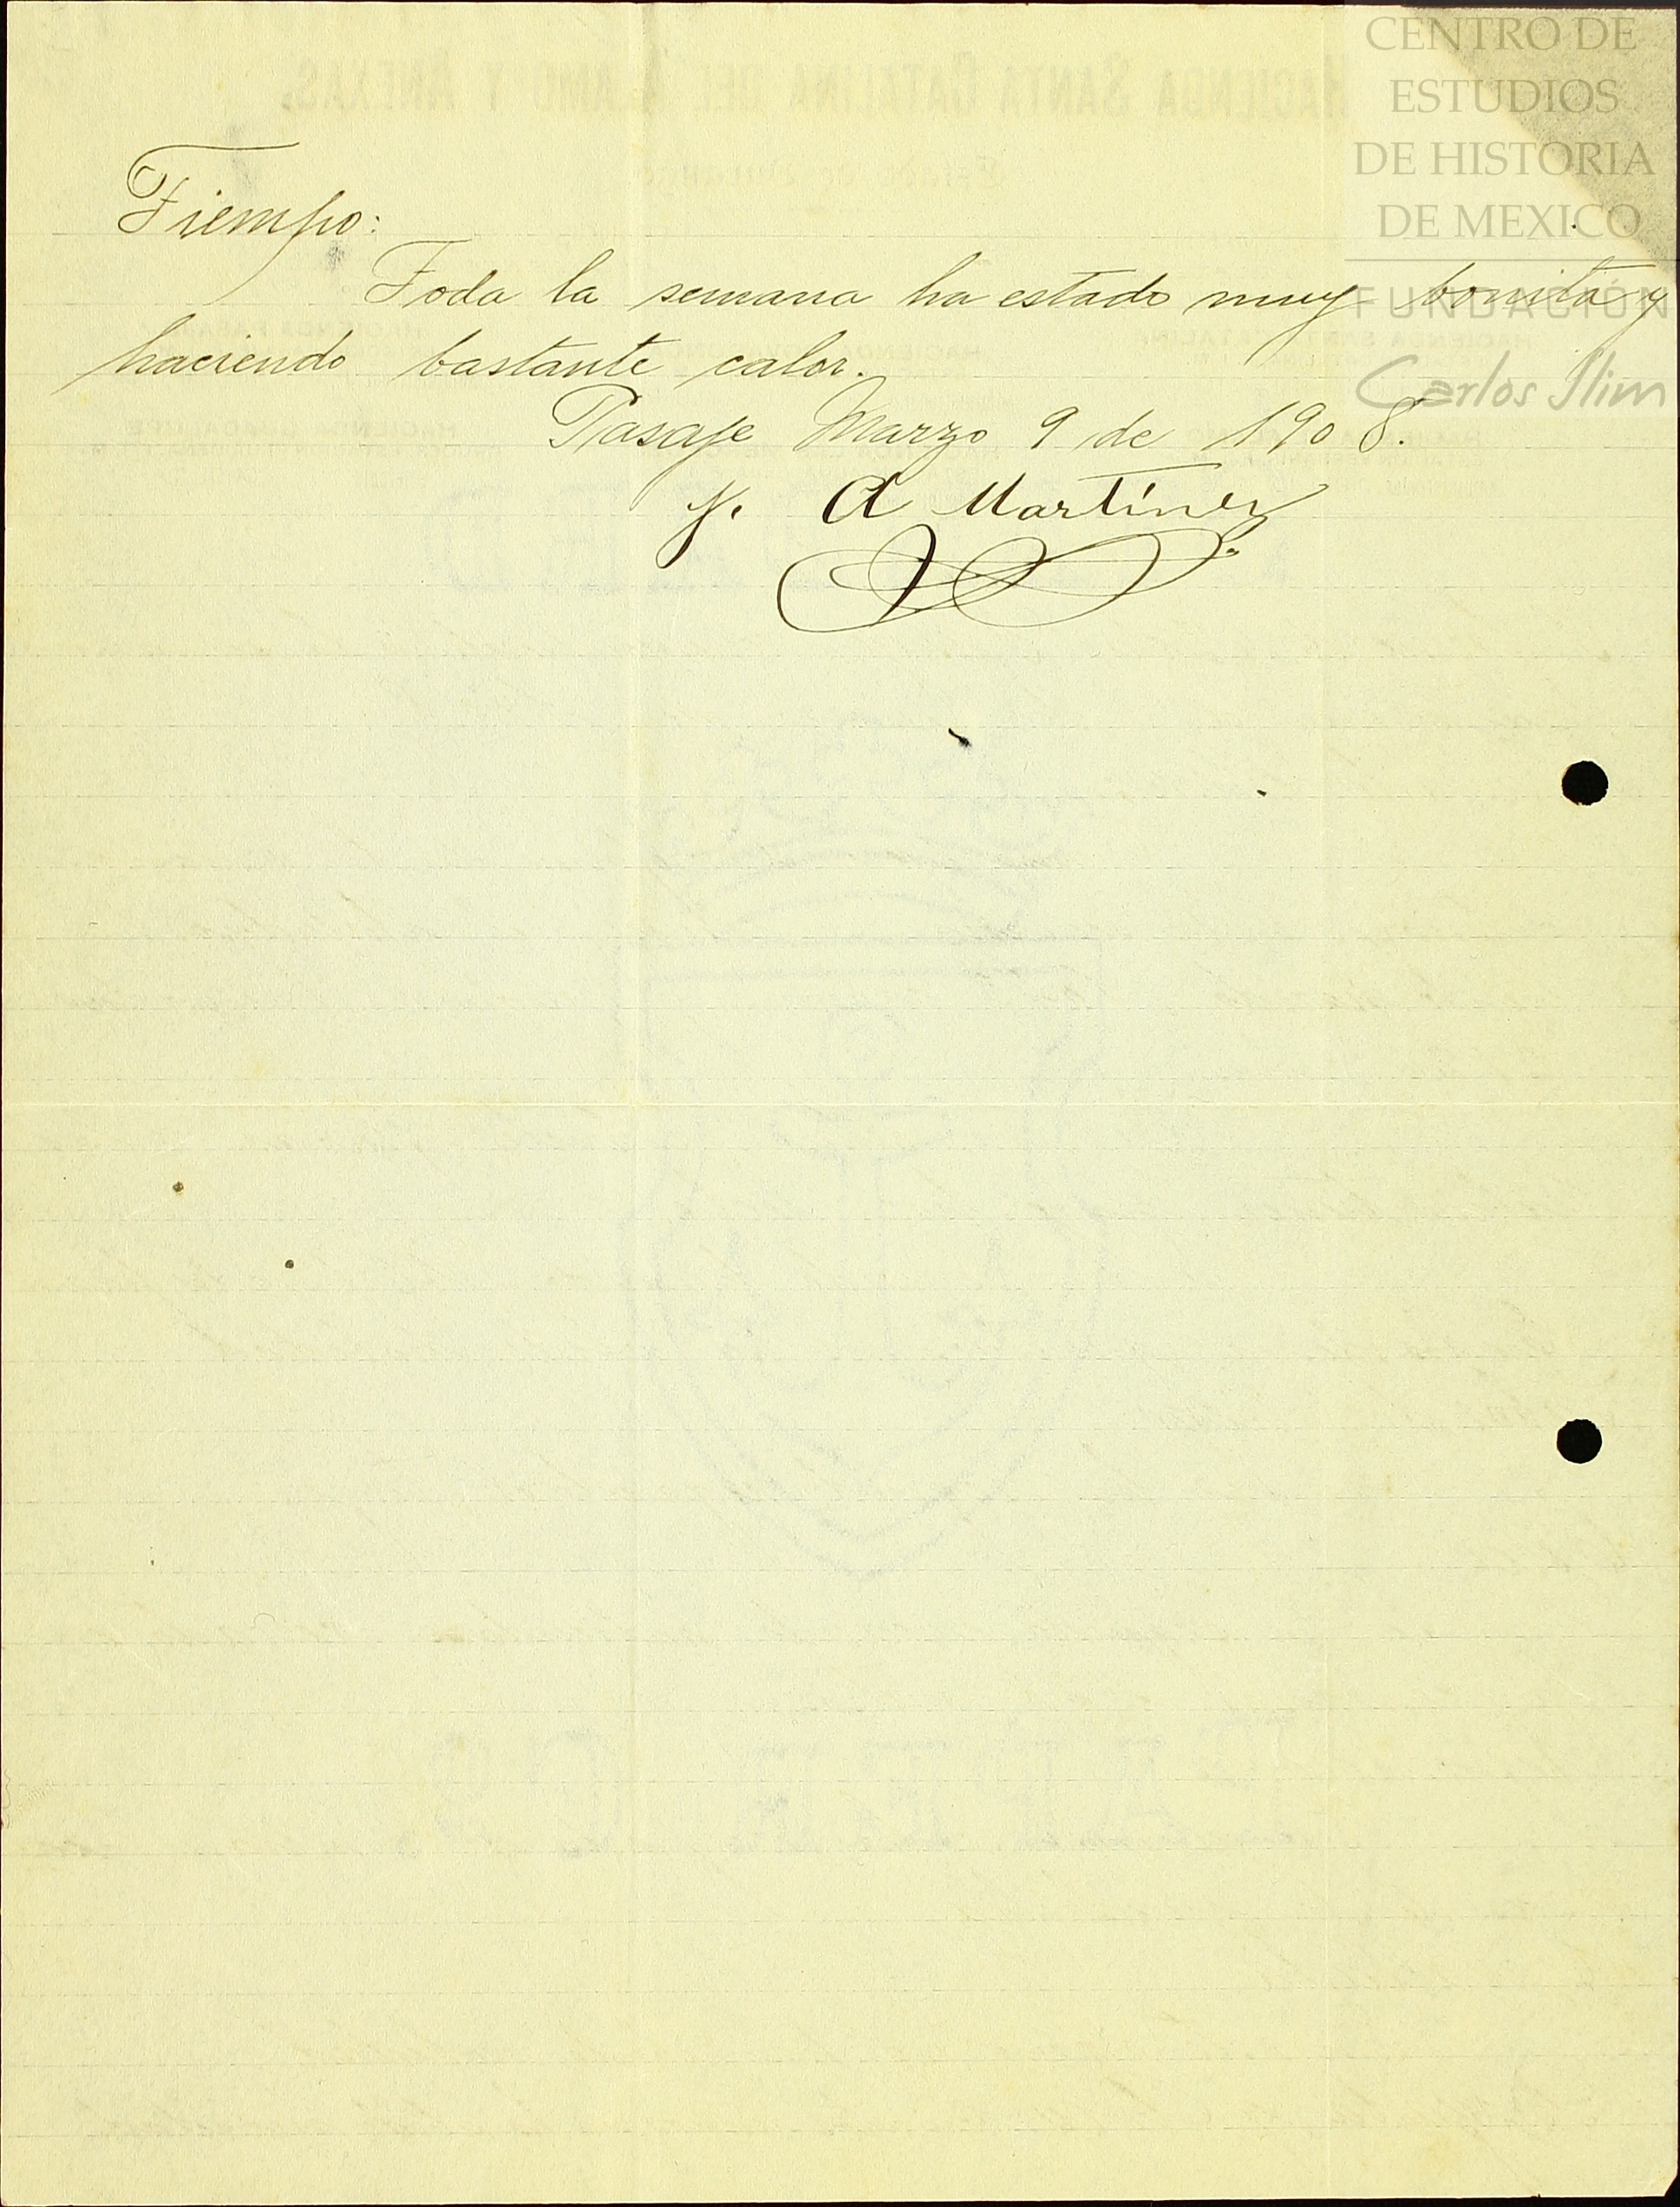 CENTRO DE
ESTUDIOS
DE HISTORIA
DE MEXICO
FUNDACIÓN
Carlos Slim
HACIENDA SANTA CATALINA DEL ALAMO Y ANEXAS.
Tiempo:
Toda la semana ha estado muy bonito y
haciendo bastante calor.
Pasaje Marzo 9 de 1908.
J. A Martínez